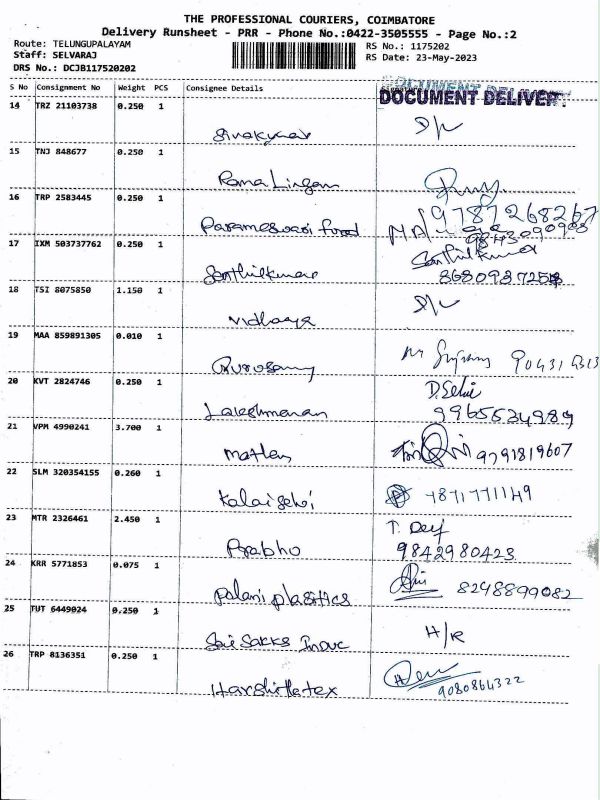 THE PROFESSIONAL COURIERS, COIMBATORE
Delivery Runsheet - PRR - Phone No.:0422-3505555 - Page No.:2
Route: TELUNGUPALAYAM
RS No.: 1175202
Staff: SELVARAJ
RS Date: 23-May-2023
DRS No.: DCJB117520202
S No Consignment No Weight PCS Consignee Details
DOCUMENT DELIVERY
14 TRZ 21103738 0.250 1
Sivakumar D/L
15 TNJ 848677 0.250 1
Rama Lingam
16 TRP 2583445 0.250 1
Parameswari Food 9787268267
17 IXM 503737762 0.250 1
Senthilkumar Senthilkumar
18 TSI 8075850 1.150 1
D/L
19 MAA 859891305 0.010 1
Gurusamy
20 KVT 2824746 0.250 1
D.Selvi
Lakshmanan 9965534989
21 VPM 4990241 3.700 1
9791819607
22 SLM 320354155 0.260 1
Kalaiselvi
23 MTR 2326461 2.450 1
Prabhu 9842980423
24 KRR 5771853 0.075 1
Palani plastics 8248899082
25 TUT 6449024 0.250 1
H/R
26 TRP 8136351 0.250 1
9080864322